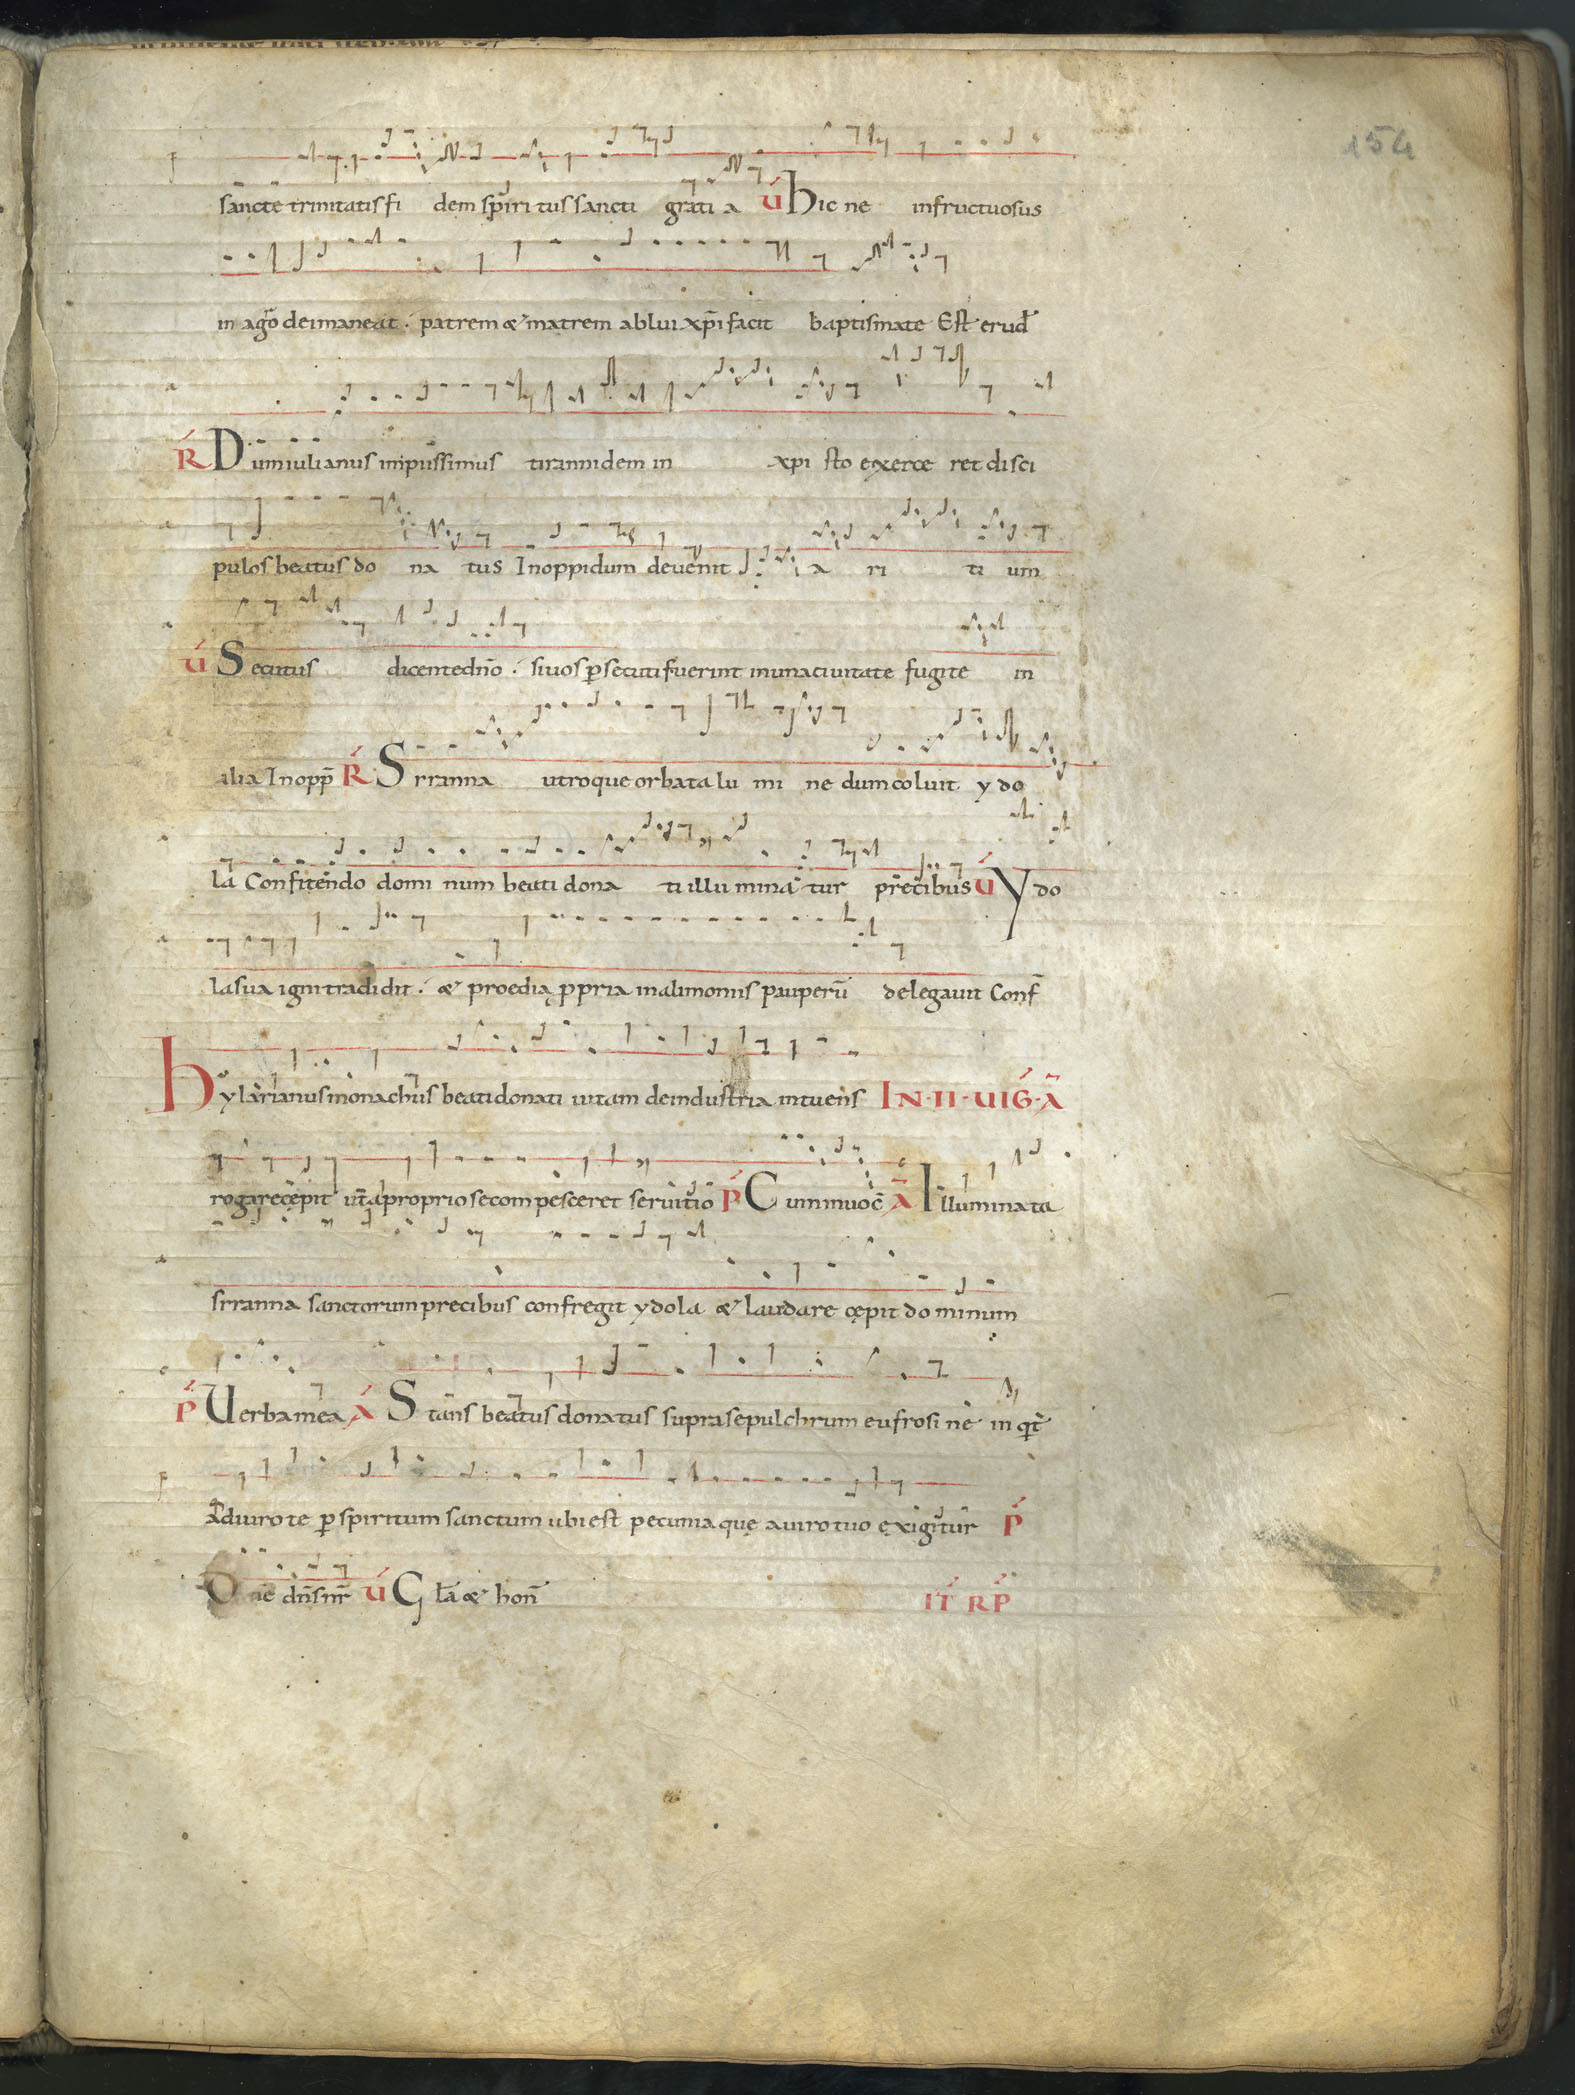 154
sancte trinitatis fi dem sp̄iri tus sancti grati a V́ Hic ne infructuosus
in agrō dei maneat . patrem & matrem ablui xp̄i facit baptismate Est erud̄
Ŕ Dum iulianus impiissimus tirannidem in xpi sto exerce ret disci
pulos beatus do na tus In oppidum devenit a ri ti um
V́ Secutus dicente dn̄o . si vos p̱secuti fuerint in una civitate fugite in
alia In opp̄ Ŕ Sıranna utroque orbata lu mi ne dum coluit ydo
la Confitendo domi num beati dona ti illu mina tur precibus V́ Ydo
la sua igni tradidit . & proedia ꝓpria in alimoniis pauperū delegavit Conf̄
Hylarianus monachus beati donati vitam de industria intuens IN·II·VIḠ·Ā
rogare cępit ut̄ a proprio se compesceret servitio Ṕ Cum invoc̄ Ā Illuminata
sıranna sanctorum precibus confregit ydola & laudare cępit dominum
Ṕ Verba mea Á Stans beatus donatus supra sepulchrum eufrosine in q̄t
Adiuro te p̱ spiritum sanctum ubi est pecunia quę a viro tuo exigitur Ṕ
Dn̄e dn̄s nr̄ V́ Gl̄a & hon̄ IT̄ RP̄